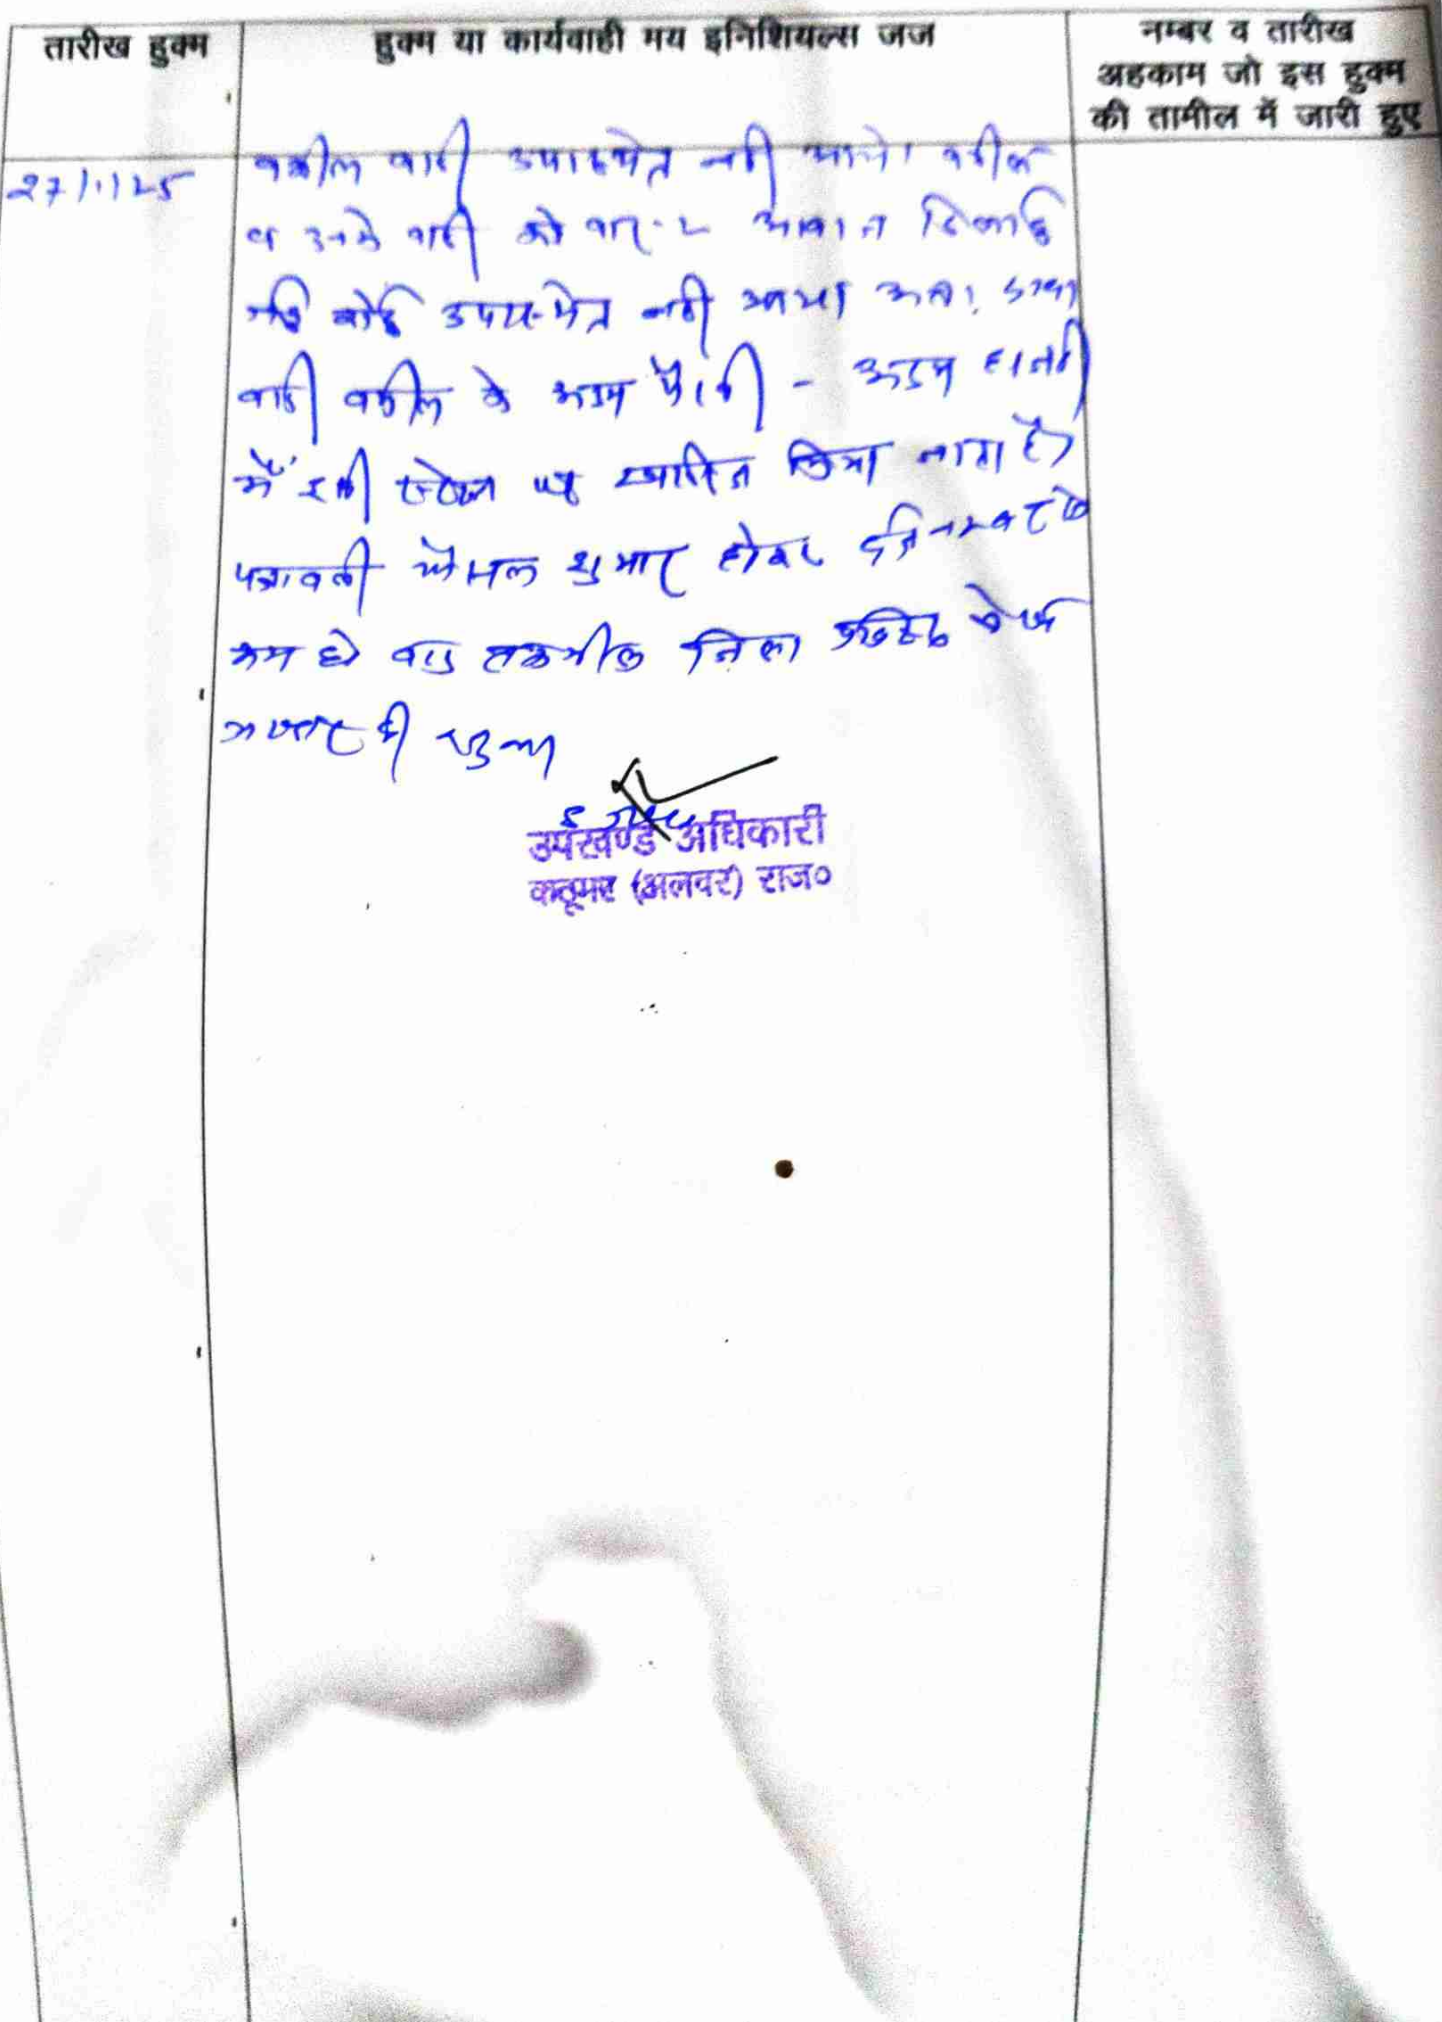 तारीख हुक्म
हुक्म या कार्यवाही मय इनिशियल्स जज
नम्बर व तारीख
अहकाम जो इस हुक्म
की तामील में जारी हुए
27/1/25
वकील वादी उपस्थित नही आये। वकील
व उनके वादी को बार-2 आवाज दिलाई
गई कोई उपस्थित नही आया अतः
वादी वकील के अदम पैरवी - अदम हाजरी
में इसी स्टेज पर खारिज किया जाता है।
पत्रावली फैसल शुमार होकर नम्बर से
कम हो बाद तकमील जिला
अलवर की
उपखण्ड अधिकारी
कठूमर (अलवर) राज०